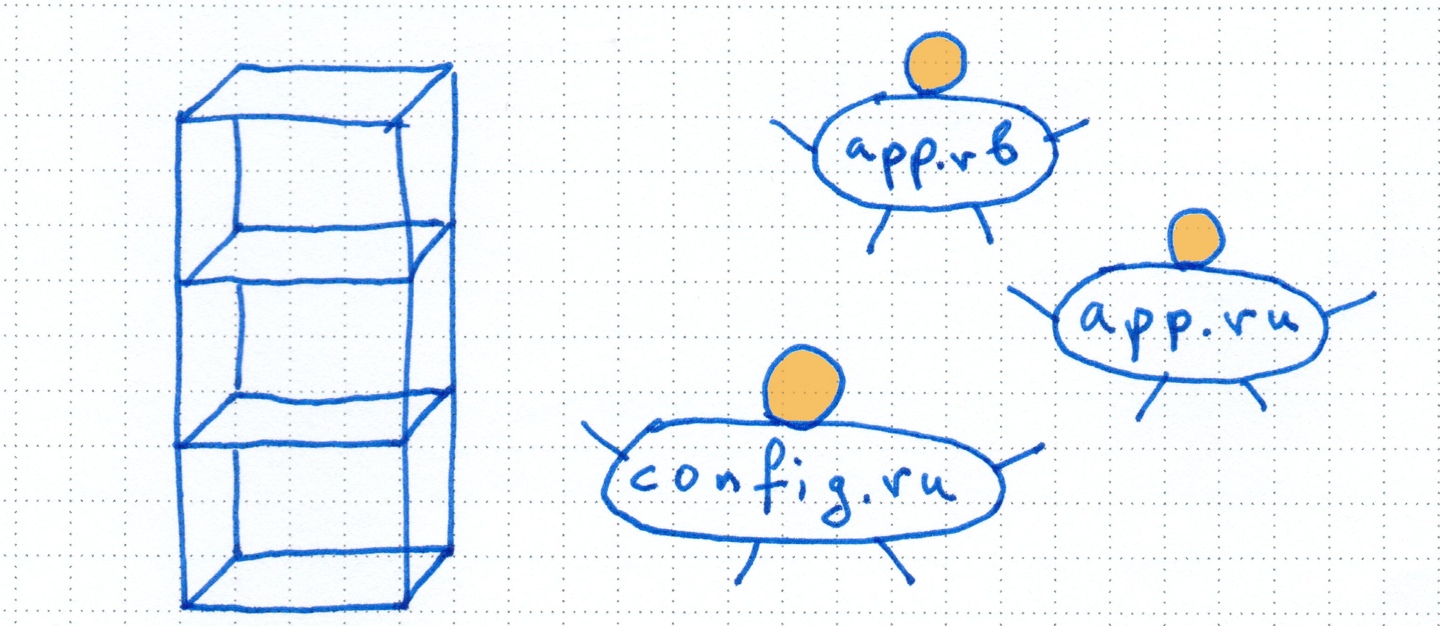 app.rb
app.ru
config.ru